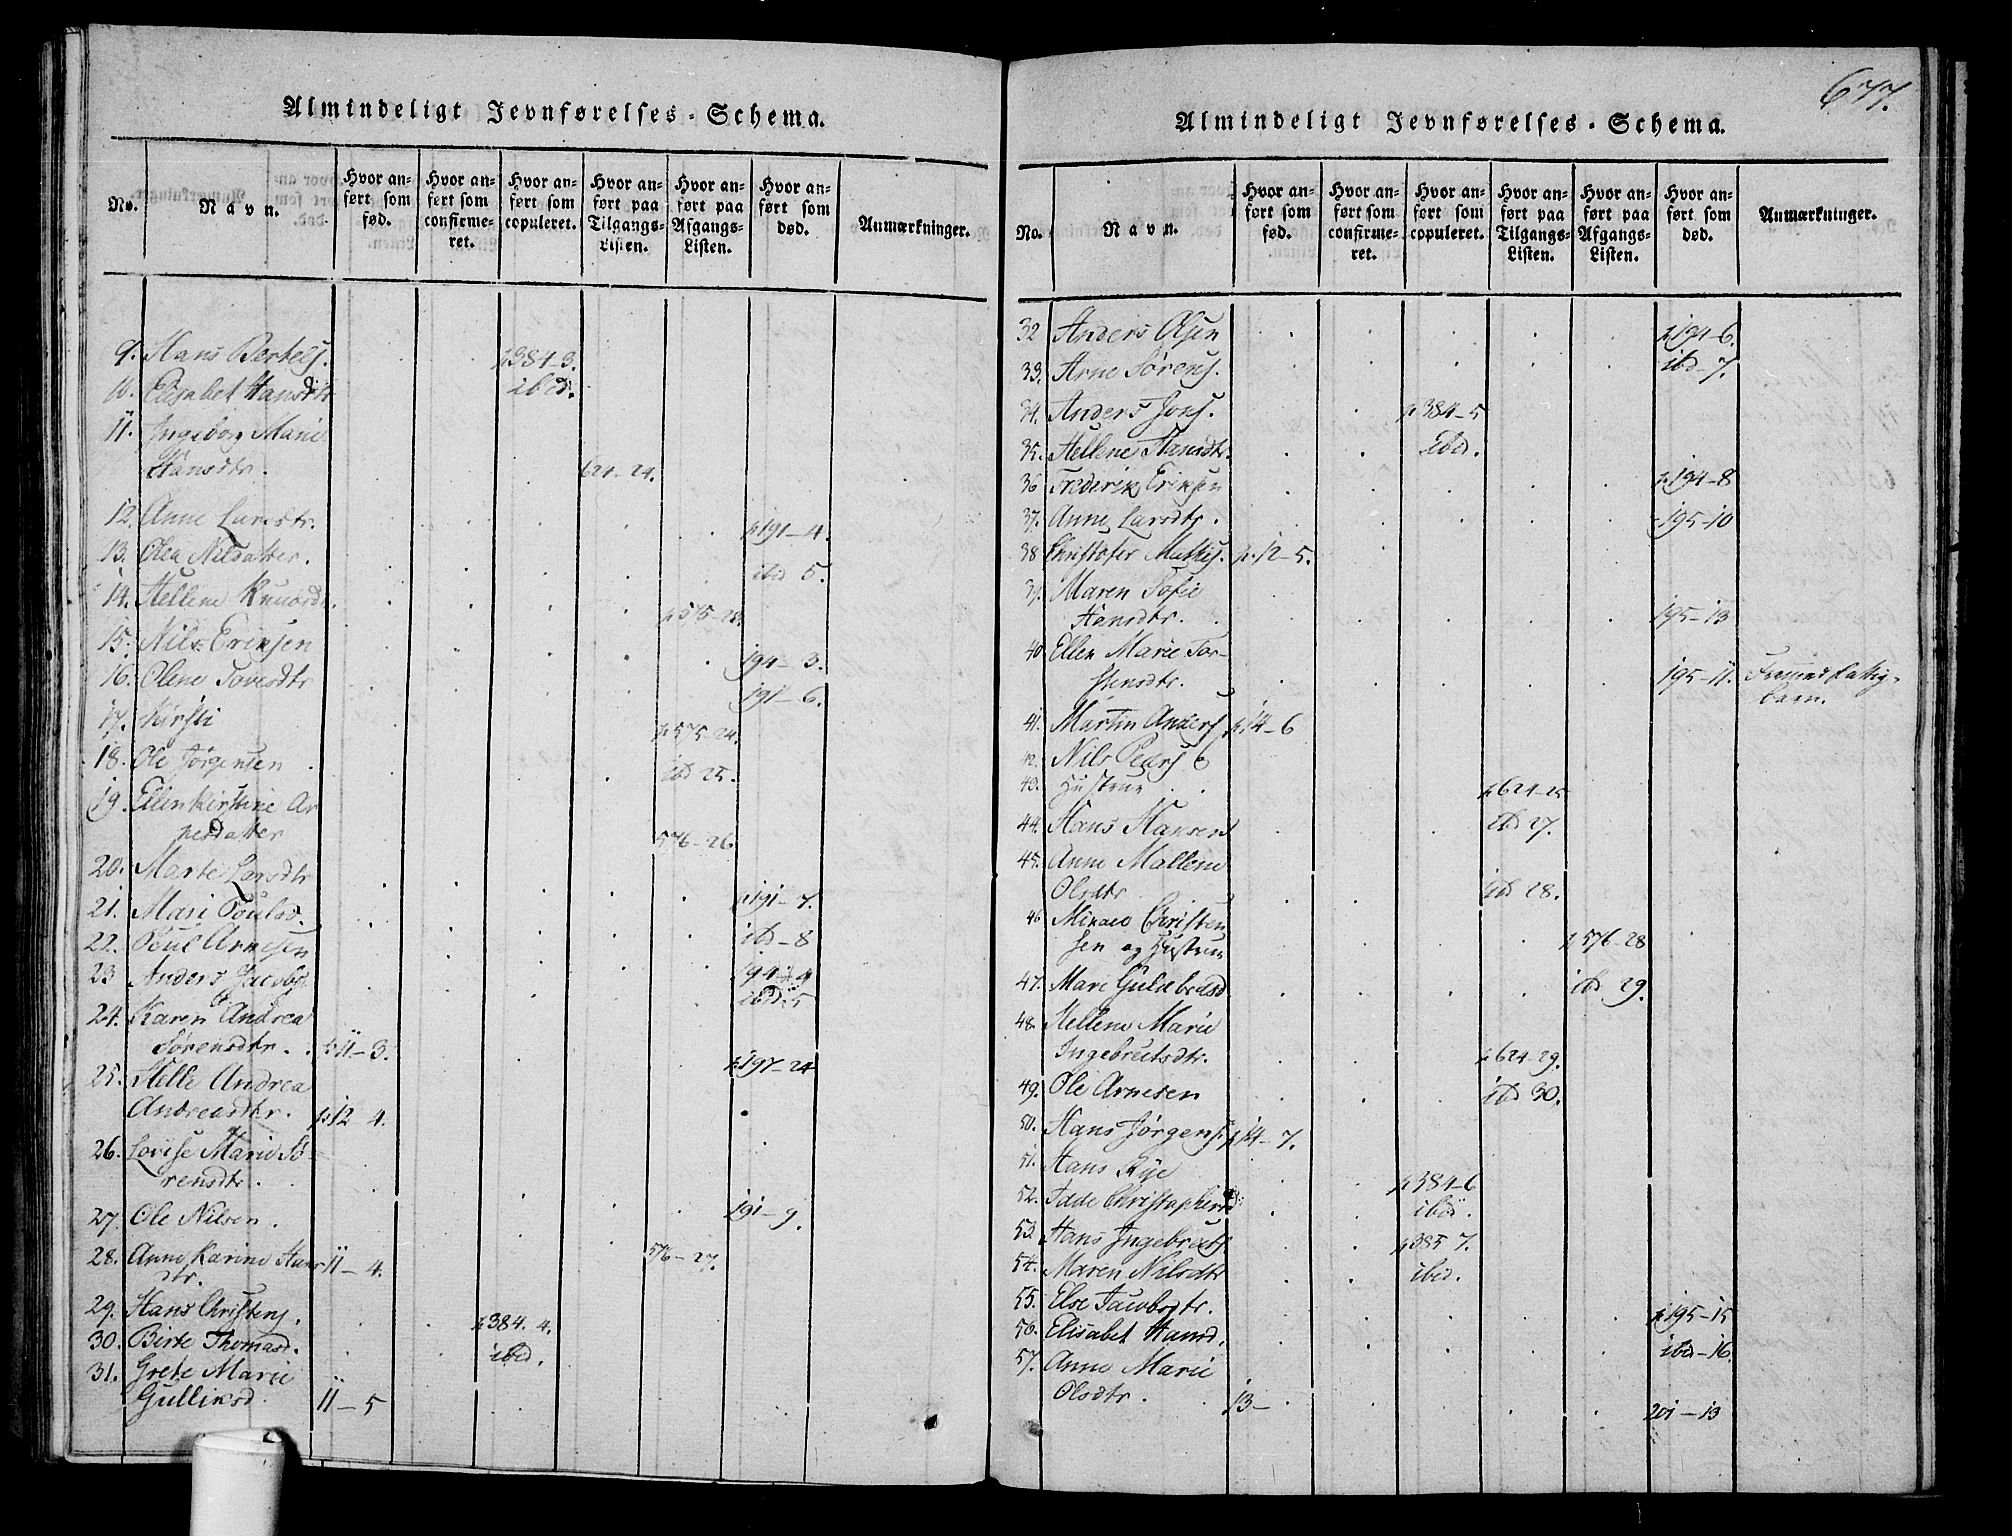 Almindeligt Jevnførelses-Schema.
No. Navn. Hvor anført som fød. Hvor anført som confirmeret. Hvor anført som copuleret. Hvor anført paa Tilgangs-Listen. Hvor anført paa Afgangs-Listen. Hvor anført som død. Anmærkninger.
9. Hans Bertels. p384-3.
10. Elisabet Hansdtr ibid.
11. Ingeborg Marie
Hansdtr. 624-24.
12. Anne Larsdtr. p191-4.
13. Olea Nilsdatter. ibd 5.
14. Hellene Knuds p575-23.
15. Nils Eriksen 194-3.
16. Olene Tovesdtr 191-6.
17. Kirsti p575-24.
18. Ole Jørgensen ibd 25.
19. Ellen Kirstine Ar
nesdatter 576-26.
20. Marte Larsdtr p191-7.
21. Mari Poulsd. ibd-8
22. Poul Arnesen 194-4
23 Anders Jacobs. ibd. 5
24. Karen Andrea
Sørensdtr. p11-3. p197-24
25. Helle Andrea
Andreasdtr. p12 4.
26. Lovise Marie Sø-
rensdtr.
27. Ole Nilsen. 191-9.
28. Anne Karine Hans 11-4. 576-27.
dtr.
29. Hans Christens. p384. 4.
30. Birte Thomasd. ibid.
31. Grete Marie
Gulliksd. 11-5
677.
Almindeligt Jevnførelses-Schema.
No. Navn. Hvor anført som fød. Hvor anført som confirmeret. Hvor anført som copuleret. Hvor anført paa Tilgangs-Listen. Hvor anført paa Afgangs-Listen. Hvor anført som død. Anmærkninger.
32 Anders Olsen p194-6.
33. Arne Sørens. ibd-7.
34. Anders Jons. p384-5
35. Hellene Hansdtr. ibid.
36 Frederik Eriksen p194-8
37. Anne Larsdtr. 195-10
38 Christofer Mathis. p.12-5.
39. Maren Sofie
Hansdtr. 195-13
40 Ellen Marie Tor-
stensdtr. 195-11. Fremmed Fattig-
barn.
41. Martin Anders. p.14-6
42. Nils Peders &
43. Hustrue p624-25
44. Hans Hansen ibd 27.
45. Anne Mallene
Olsdtr ibd 28.
46 Mikael Christen
sen og Hustrue p576-28
47. Mari Guldbrdsd ibd 29.
48. Hellene Marie
Ingebretsdtr. p624-29.
49. Ole Arnesen ibd 30.
50. Hans Jørgens. p14-7.
51. Hans Rye p384-6
52. Idde Christophersd. ibid.
53 Hans Ingebrets. p385 7.
54. Maren Nilsdtr ibid.
55. Else Jacobsdtr. p195-15
56. Elisabet Hansd. ibid-16.
57. Anne Marie
Olsdtr. 13- 201-13